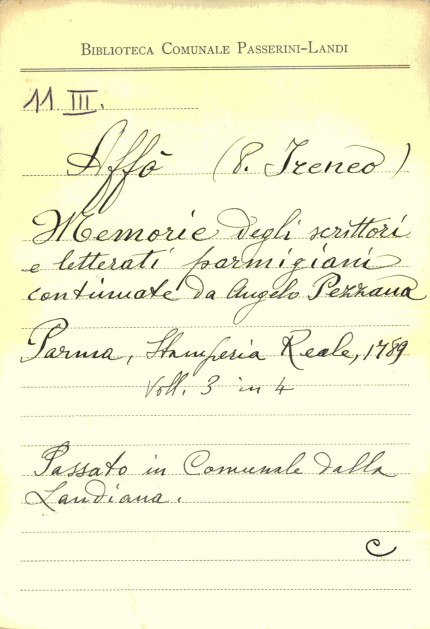 BIBLIOTECA COMUNALE PASSERINI-LANDI
11 III.
Affò (P. Ireneo)
Memorie degli scrittori
e letterati parmigiani
continuate da Angelo Pezzana
Parma, Stamperia Reale, 1789
Voll. 3 in 4
Passato in Comunale dalla
Landiana.
C